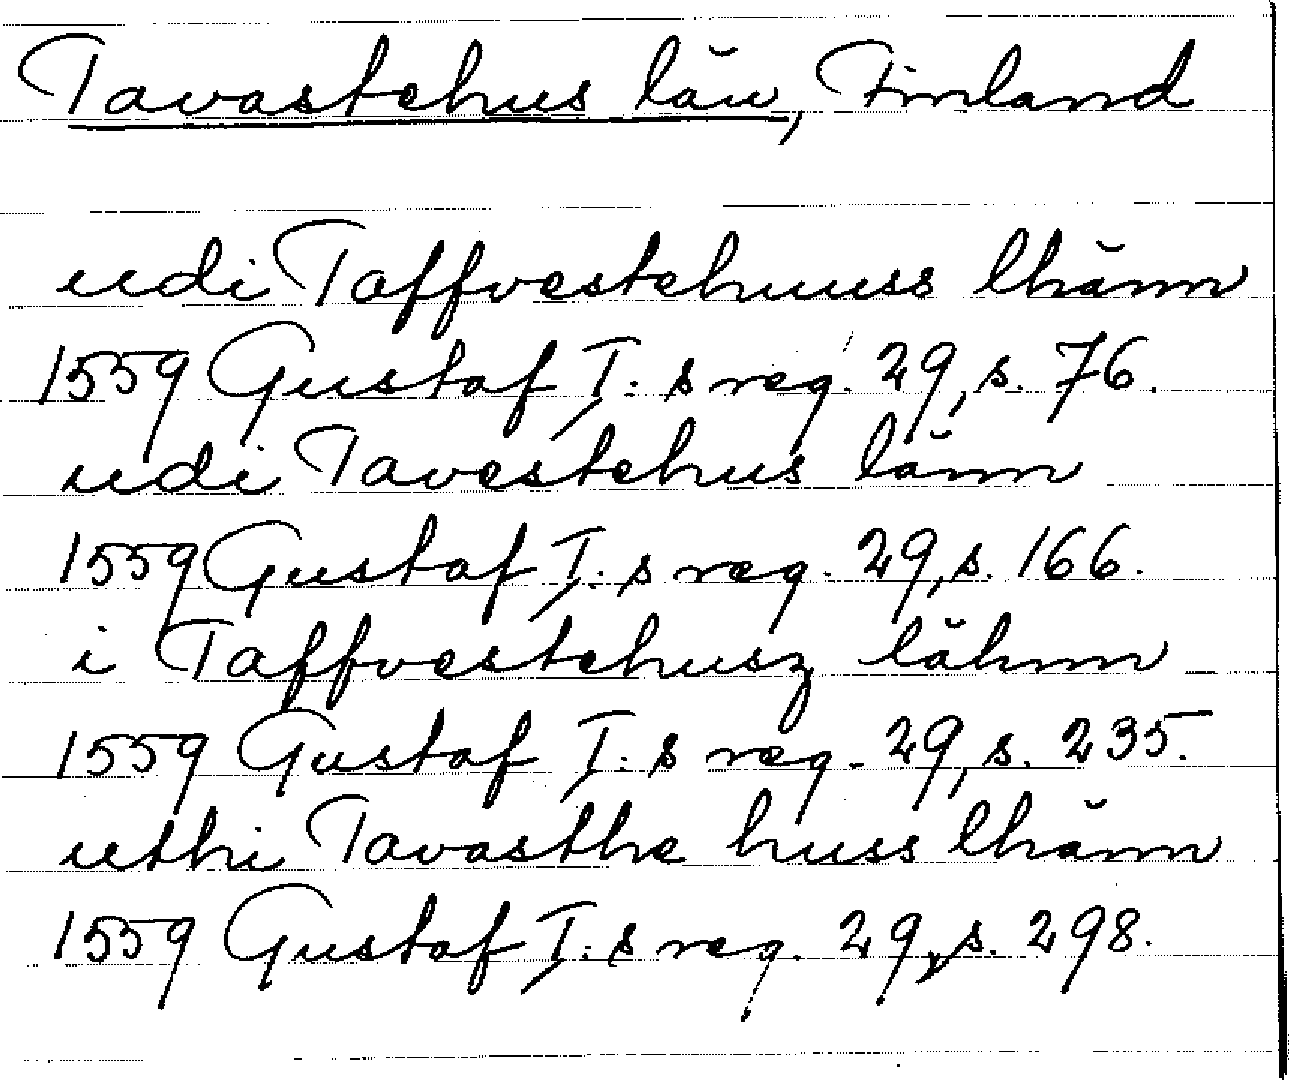 Tavastehus län, Finland
udi Taffvestehuuss lhänn
1559 Gustaf I: s reg. 29, s. 76.
udi Tavestehus länn
1559 Gustaf I: s reg. 29, s. 166.
i Taffvestehusz lähnn
1559 Gustaf I: s reg. 29, s. 235.
uthi Tavasthe huss lhänn
1559 Gustaf I: s reg. 29, s. 298.